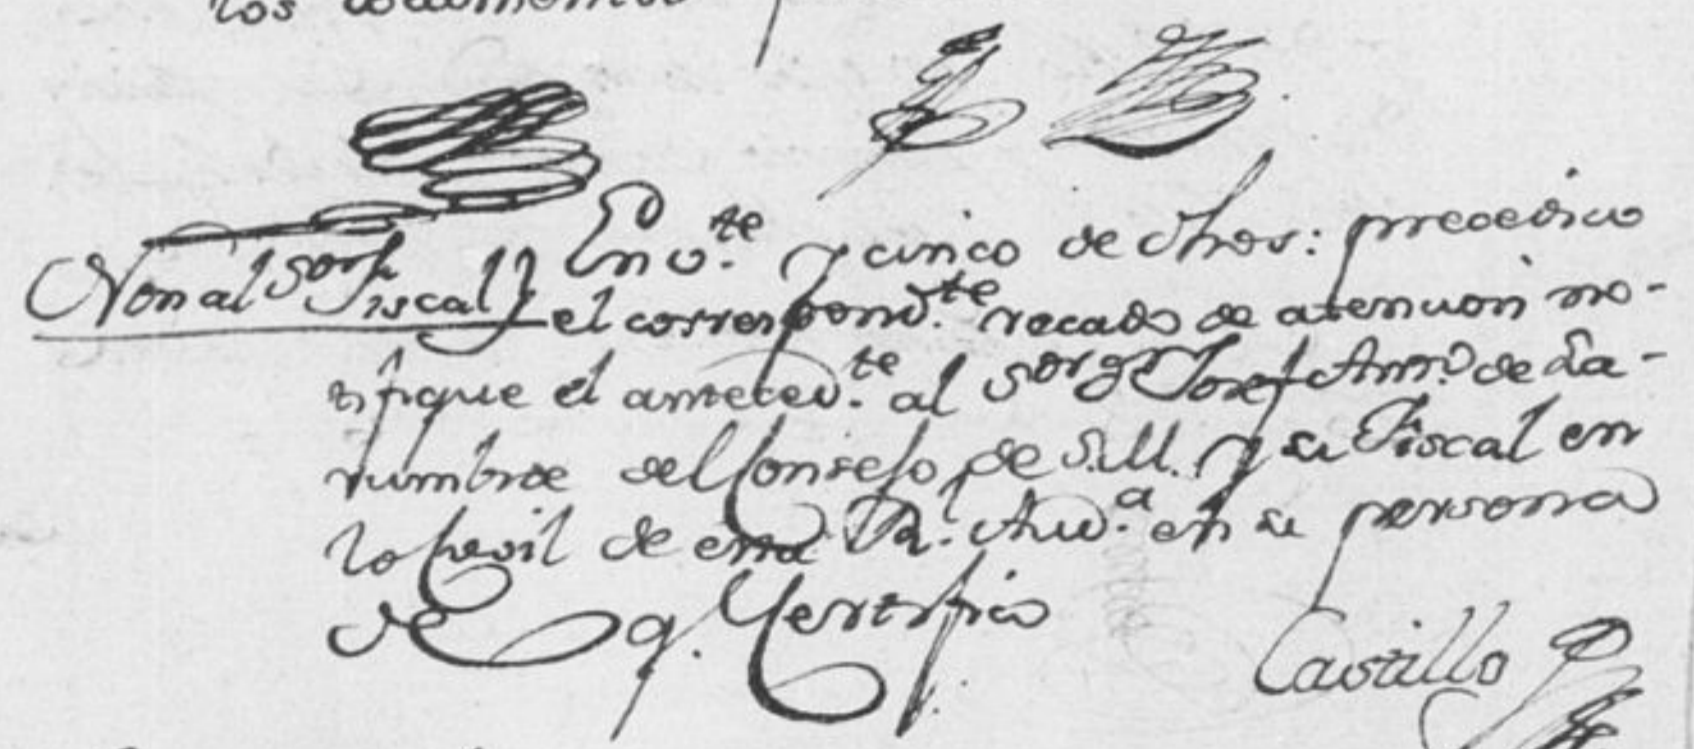 los documentos
Non al Sor Fiscal} En v.te y cinco de dhos: precedido
el correspond.te recado de atencion no-
tifique el anteced.te al Sor Dn Josef Ant.o de La-
rumbide del Consejo de S.M. y su Fiscal en
lo Cevil de esta Rl. Aud.a en su persona
de q. Certifico
Castillo